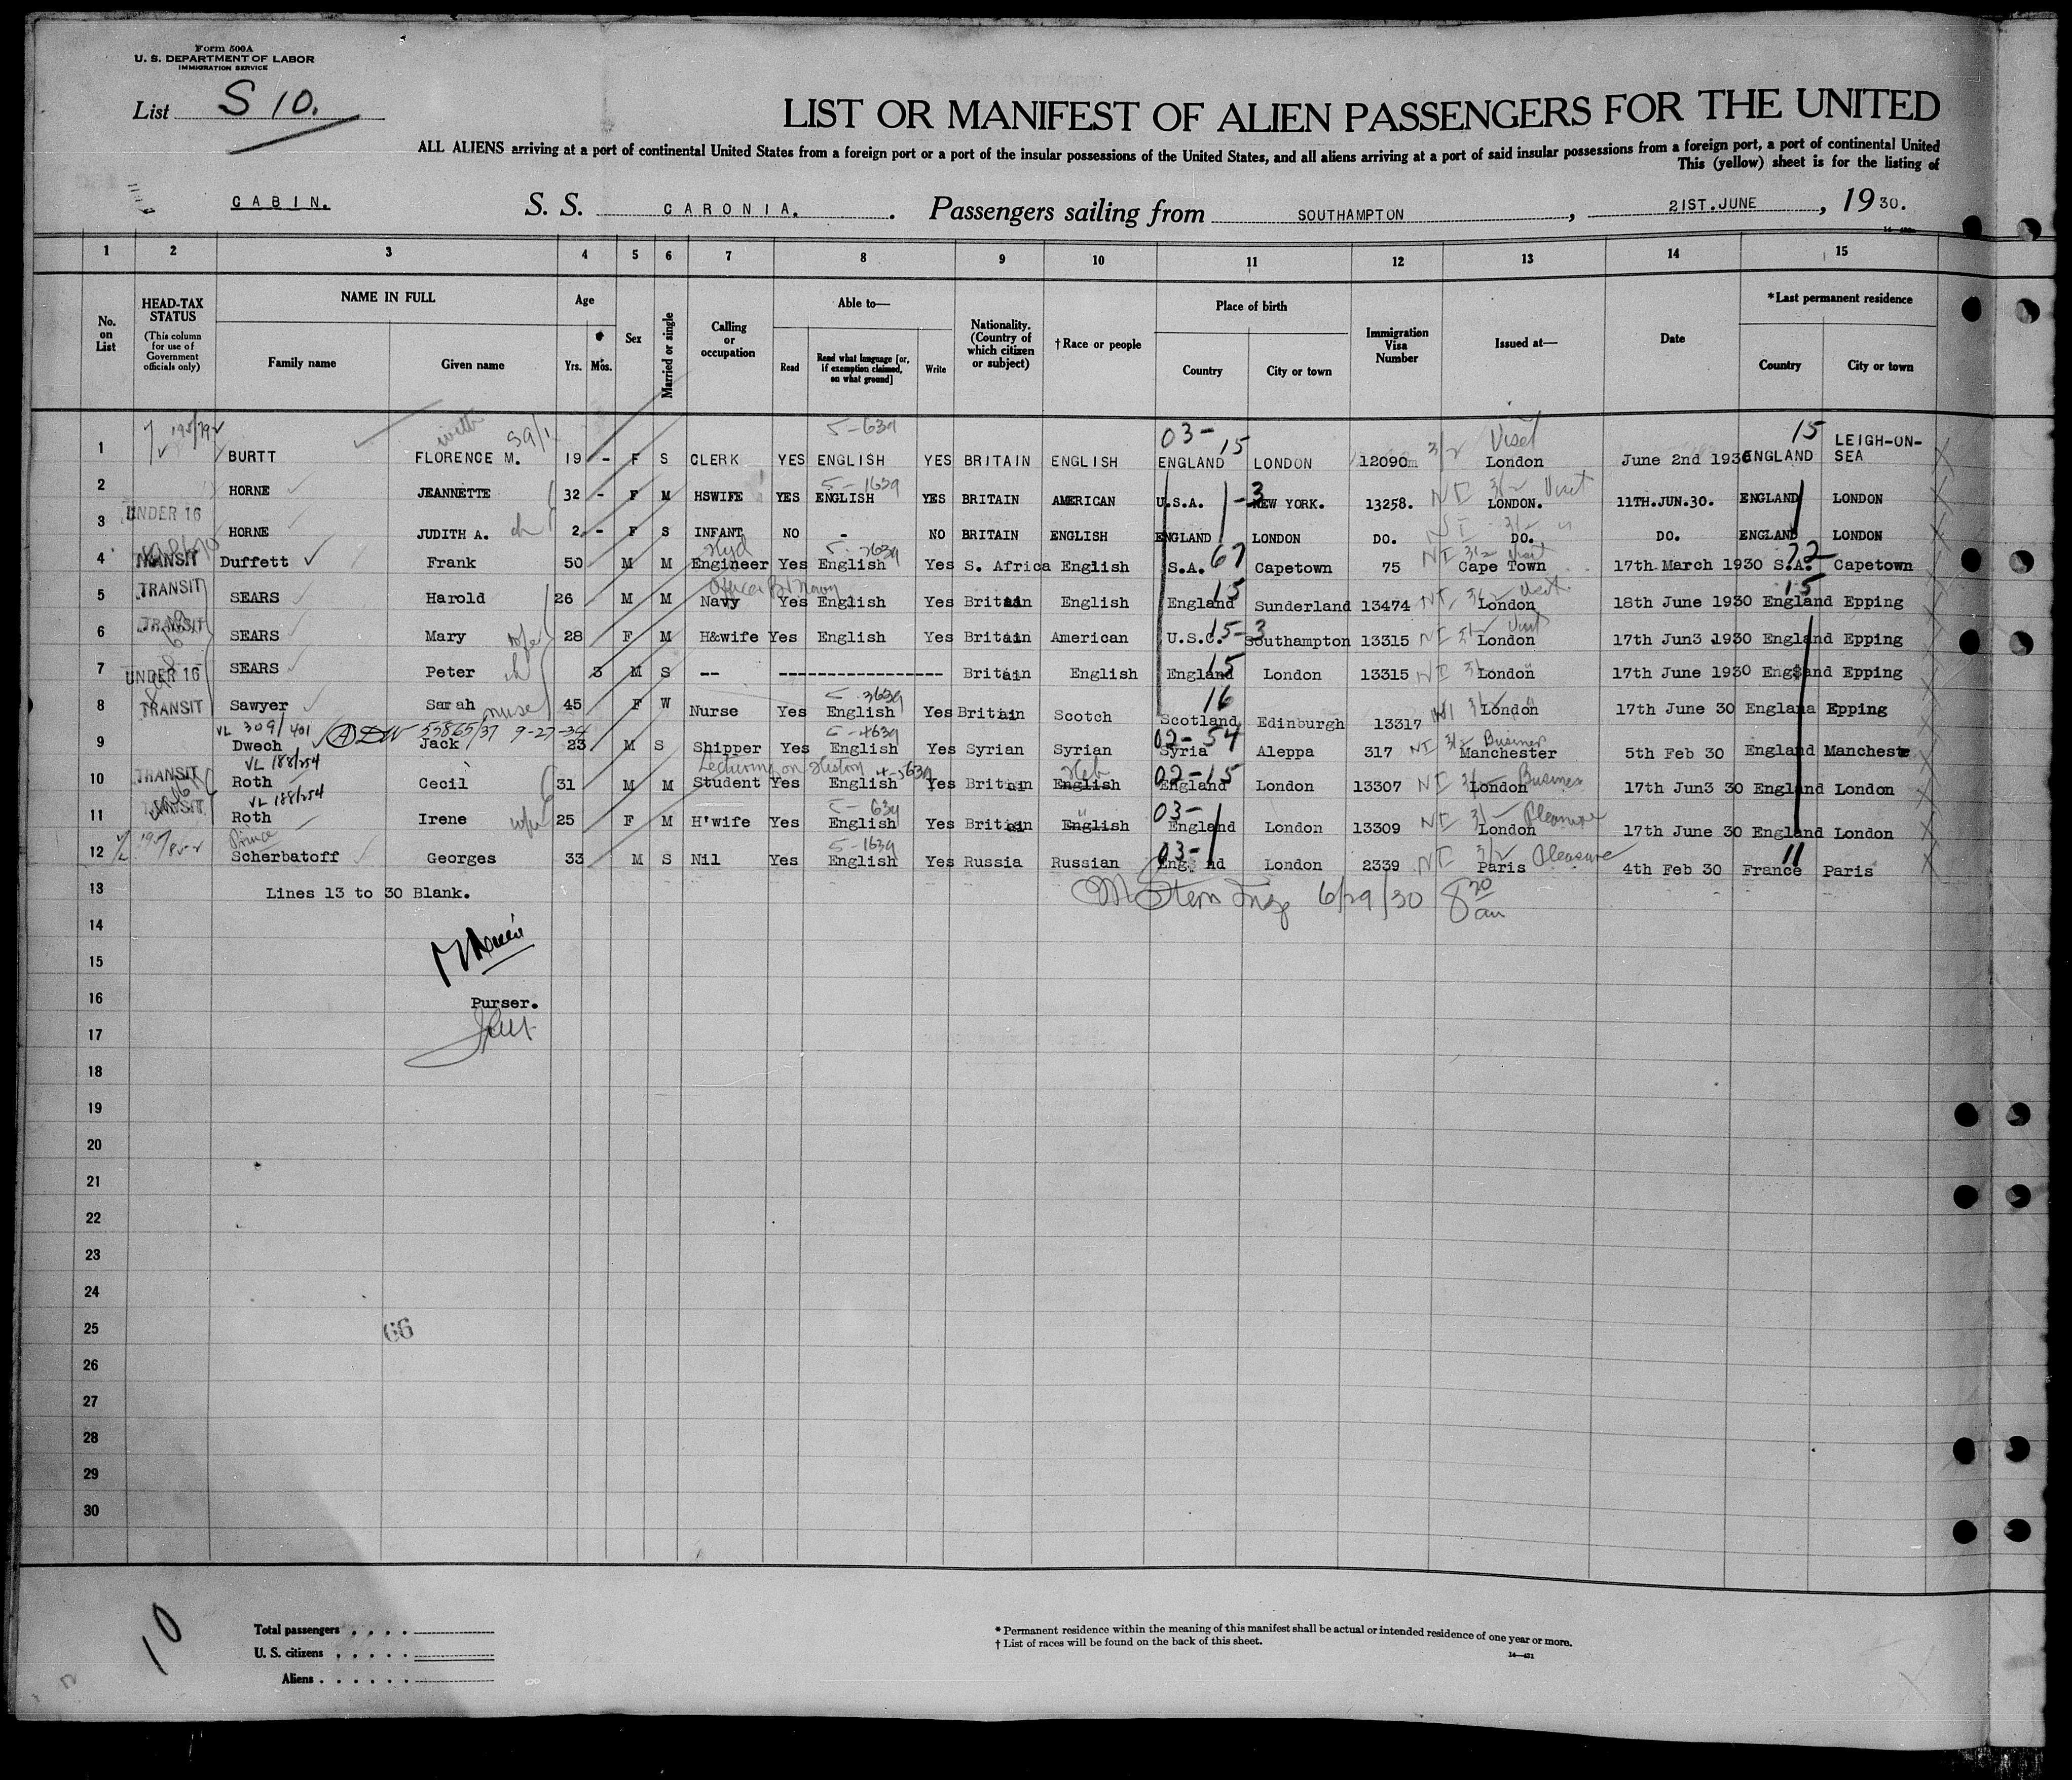 Form 500A
U. S. DEPARTMENT OF LABOR
IMMIGRATION SERVICE
List S 10.
LIST OR MANIFEST OF ALIEN PASSENGERS FOR THE UNITED
ALL ALIENS arriving at a port of continental United States from a foreign port or a port of the insular possessions of the United States, and all aliens arriving at a port of said insular possessions from a foreign port, a port of continental United
This (yellow) sheet is for the listing of
CABIN. S. S. CARONIA. Passengers sailing from SOUTHAMPTON, 21ST.JUNE, 1930.
1 2 3 4 5 6 7 8 9 10 11 12 13 14 15
No. on List
HEAD-TAX STATUS
(This column for use of Government officials only)
NAME IN FULL
Family name Given name
Age
Yrs. Mos.
Sex
Married or single
Calling or occupation
Able to—
Read Read what language [or, if exemption claimed, on what ground] Write
Nationality. (Country of which citizen or subject)
†Race or people
Place of birth
Country City or town
Immigration Visa Number
Issued at—
Date
*Last permanent residence
Country City or town
with 5-639 03- 15 3/2 Visit 15
1 BURTT FLORENCE M. 19 - F S CLERK YES ENGLISH YES BRITAIN ENGLISH ENGLAND LONDON 12090 London June 2nd 1930 ENGLAND LEIGH-ON-SEA
5-1639 1-3 NI 3/2 Visit
2 HORNE JEANNETTE 32 - F M HSWIFE YES ENGLISH YES BRITAIN AMERICAN U.S.A. NEW YORK. 13258. LONDON. 11TH.JUN.30. ENGLAND LONDON
UNDER 16
3 HORNE JUDITH A. ch 2 - F S INFANT NO - NO BRITAIN ENGLISH ENGLAND LONDON DO. DO. DO. ENGLAND LONDON
Hyd 67 NI 3/2 Visit 72
4 TRANSIT Duffett Frank 50 M M Engineer Yes English Yes S. Africa English S.A. Capetown 75 Cape Town 17th March 1930 S.A. Capetown
Officer Br Navy 15 NI Visit 15
5 TRANSIT SEARS Harold 26 M M Navy Yes English Yes Britain English England Sunderland 13474 London 18th June 1930 England Epping
15-3 NI Visit
6 TRANSIT SEARS Mary wife 28 F M H&wife Yes English Yes Britain American U.S.C. Southampton 13315 London 17th Jun3 1930 England Epping
15 NI
7 UNDER 16 SEARS Peter ch 3 M S -- ----------------- Britain English England London 13315 London 17th June 1930 Eng$and Epping
5-3639 16
8 TRANSIT Sawyer Sarah nurse 45 F W Nurse Yes English Yes Britain Scotch Scotland Edinburgh 13317 London 17th June 30 England Epping
VL 309/401 55865/37 9-27-34 5-4639 02-54 NI 3/2 Business
9 Dwech Jack 23 M S Shipper Yes English Yes Syrian Syrian Syria Aleppa 317 Manchester 5th Feb 30 England Mancheste
VL 188/254 Lecturing on History Heb 02-15 NI Business
10 TRANSIT Roth Cecil 31 M M Student Yes English Yes Britian English England London 13307 London 17th Jun3 30 England London
VL 188/254 5-639 " 03- NI Pleasure
11 TRANSIT Roth Irene wife 25 F M H'wife Yes English Yes Britian English England London 13309 London 17th June 30 England London
Prince 5-1639 03-1 NI 3/2 Pleasure 11
12 Scherbatoff Georges 33 M S Nil Yes English Yes Russia Russian Eng. nd London 2339 Paris 4th Feb 30 France Paris
13 Lines 13 to 30 Blank.
6/29/30 8 20 am
14
15
16 Purser.
17
18
19
20
21
22
23
24
25 66
26
27
28
29
30
10
Total passengers . . . .
U. S. citizens . . . . .
Aliens . . . . . .
* Permanent residence within the meaning of this manifest shall be actual or intended residence of one year or more.
† List of races will be found on the back of this sheet.